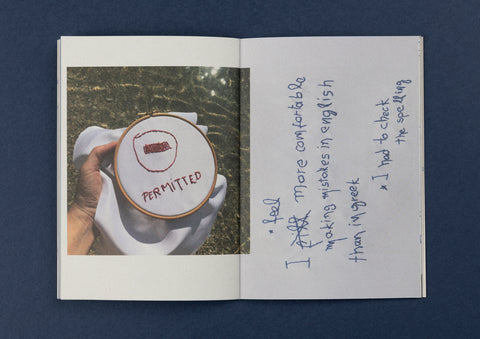 PERMITTED
* feel
I more comfortable
making mistakes in english
than in greek
* I had to check
the spelling